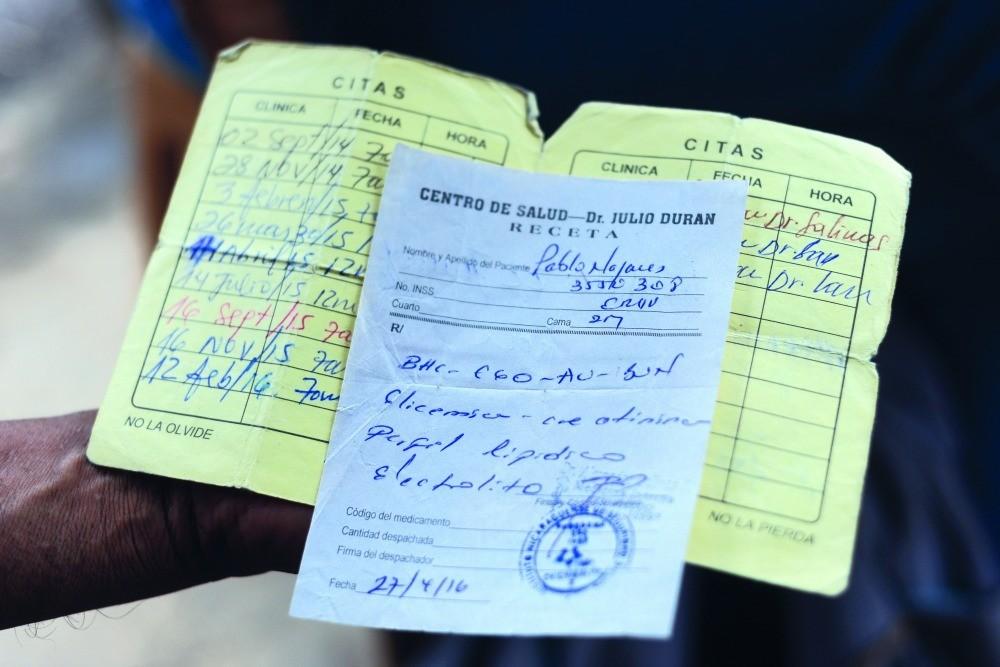 CITAS
CLINICA FECHA HORA
02 Sept/14 7a
28 NOV/14 7a
3 febrer/15
26 marzo/15
Abril/15 12m
14 Julio/15 12m
16 Sept/15 7a
16 NOV/15 7a
12 feb/16. 7am
NO LA OLVIDE
CENTRO DE SALUD—Dr. JULIO DURAN
RECETA
Nombre y Apellido del Paciente Pablo
No. INSS
Cuarto Cama
R/
BHC - EGO - AU - BUN
Glicemia - creatinina
Perfil lipidico
Electrolito
Código del medicamento
Cantidad despachada
Firma del despachador
Fecha 27/4/16
CITAS
CLINICA FECHA HORA
Dr. Salinas
Dr
Dr.
NO LA PIERDA